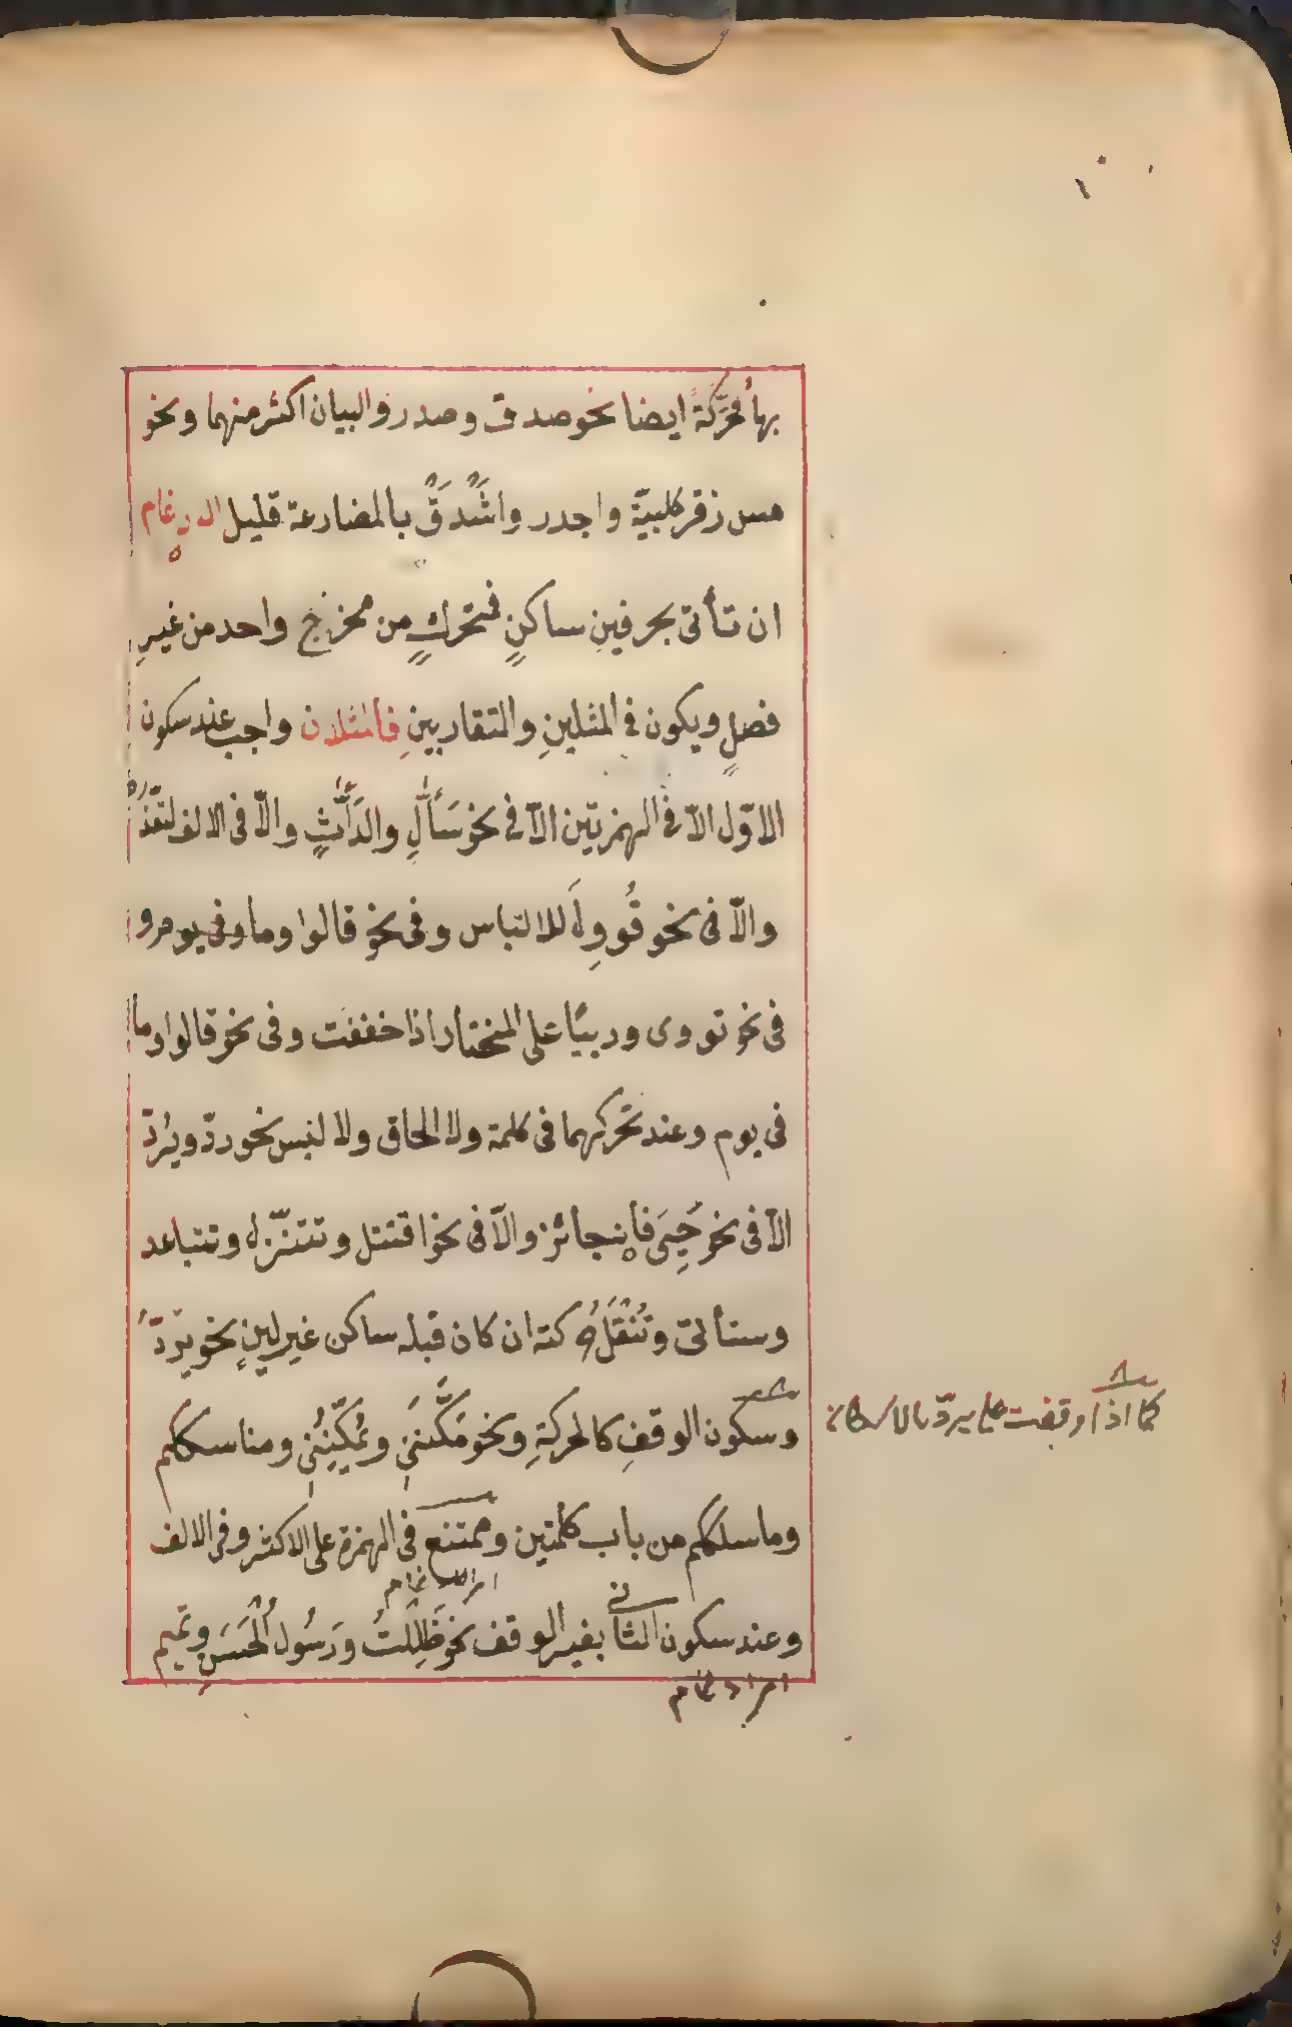 بها محرَّكةً ايضا نحو صدق وصدر والبيان اكثر منهما ونحو
مس زقر كلبيّة واجدر واشَّدَقَّ بالمضارعة قليل الادغام
ان تأتى بحرفين ساكنٍ فمتحركٍ من مخرج واحد من غيرِ
فصلٍ ويكون فى المثلينِ والمتقاربينِ فالمثلان واجب عند سكون
الاوّل الاّ فى الهمزتين الاّ فى نحو سَأّلٍ والدَأّثٍ والاّ فى الالف لتعذّر
والاّ فى نحو قُووِلَ للالتباس وفى نحو قالوا وما وفى يوم و
فى نحو تووى وربيّا على المختار اذا خففت وفى نحو قالوا وما
فى يوم وعند تحركهما فى كلمة ولا الحاق ولا لبس نحو ردّ ويردّ
الاّ فى نحو حَيِىَ فانه جائز والاّ فى نحو اقتتل وتتنزّل وتتباعد
وستأتى وتُنْقَلُ حركته ان كان قبله ساكن غير لينٍ نحو يردّ
وسكون الوقفِ كالحركةِ ونحو مَكَّننى ويُمَكِّنُنى ومناسككم
كما اذا وقفت على يردّ بالاسكان
وما سلككم من باب كلمتين وممتنع فى الهمزة على الاكثر وفى الالف
اى الادغام
وعند سكون الثانى بغير الوقف نحو ظَلِلْتُ ورَسُولُ الْحَسَنِ وتميم
اى ادغام